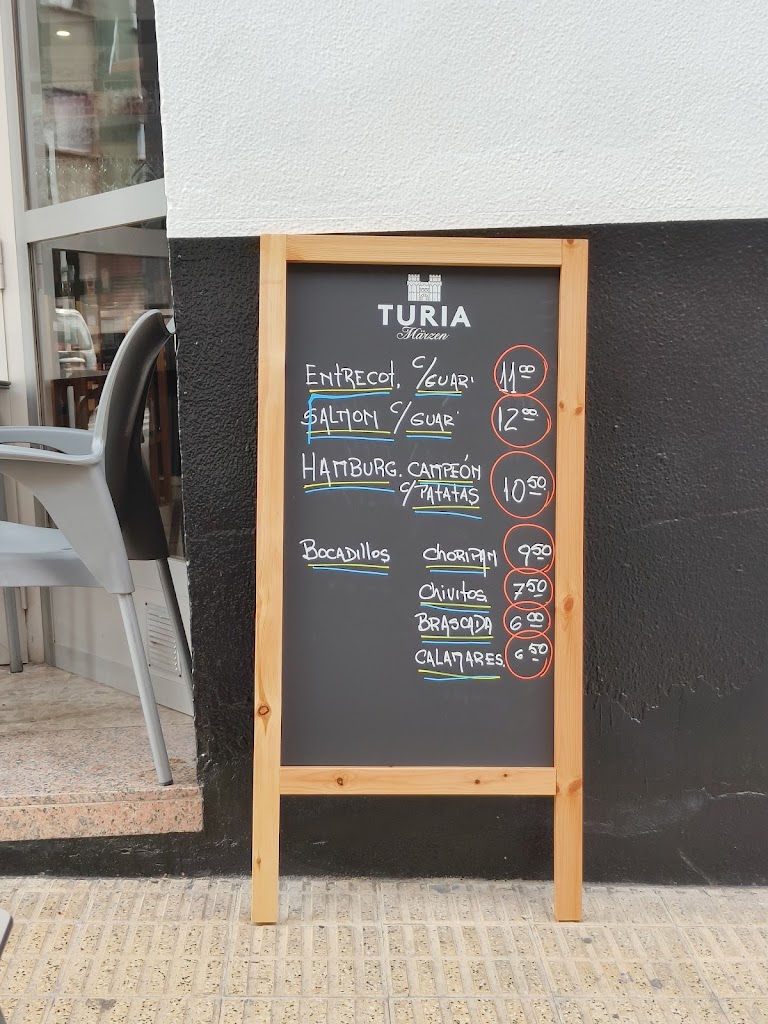 TURIA
Märzen
ENTRECOT. C/GUAR. 11⁰⁰
SALMON C/GUAR. 12⁰⁰
HAMBURG. CAMPEÓN
C/PATATAS 10⁵⁰
BOCADILLOS CHORIPAM 9⁵⁰
CHIVITOS 7⁵⁰
BRASCADA 6⁰⁰
CALAMARES. 6⁵⁰